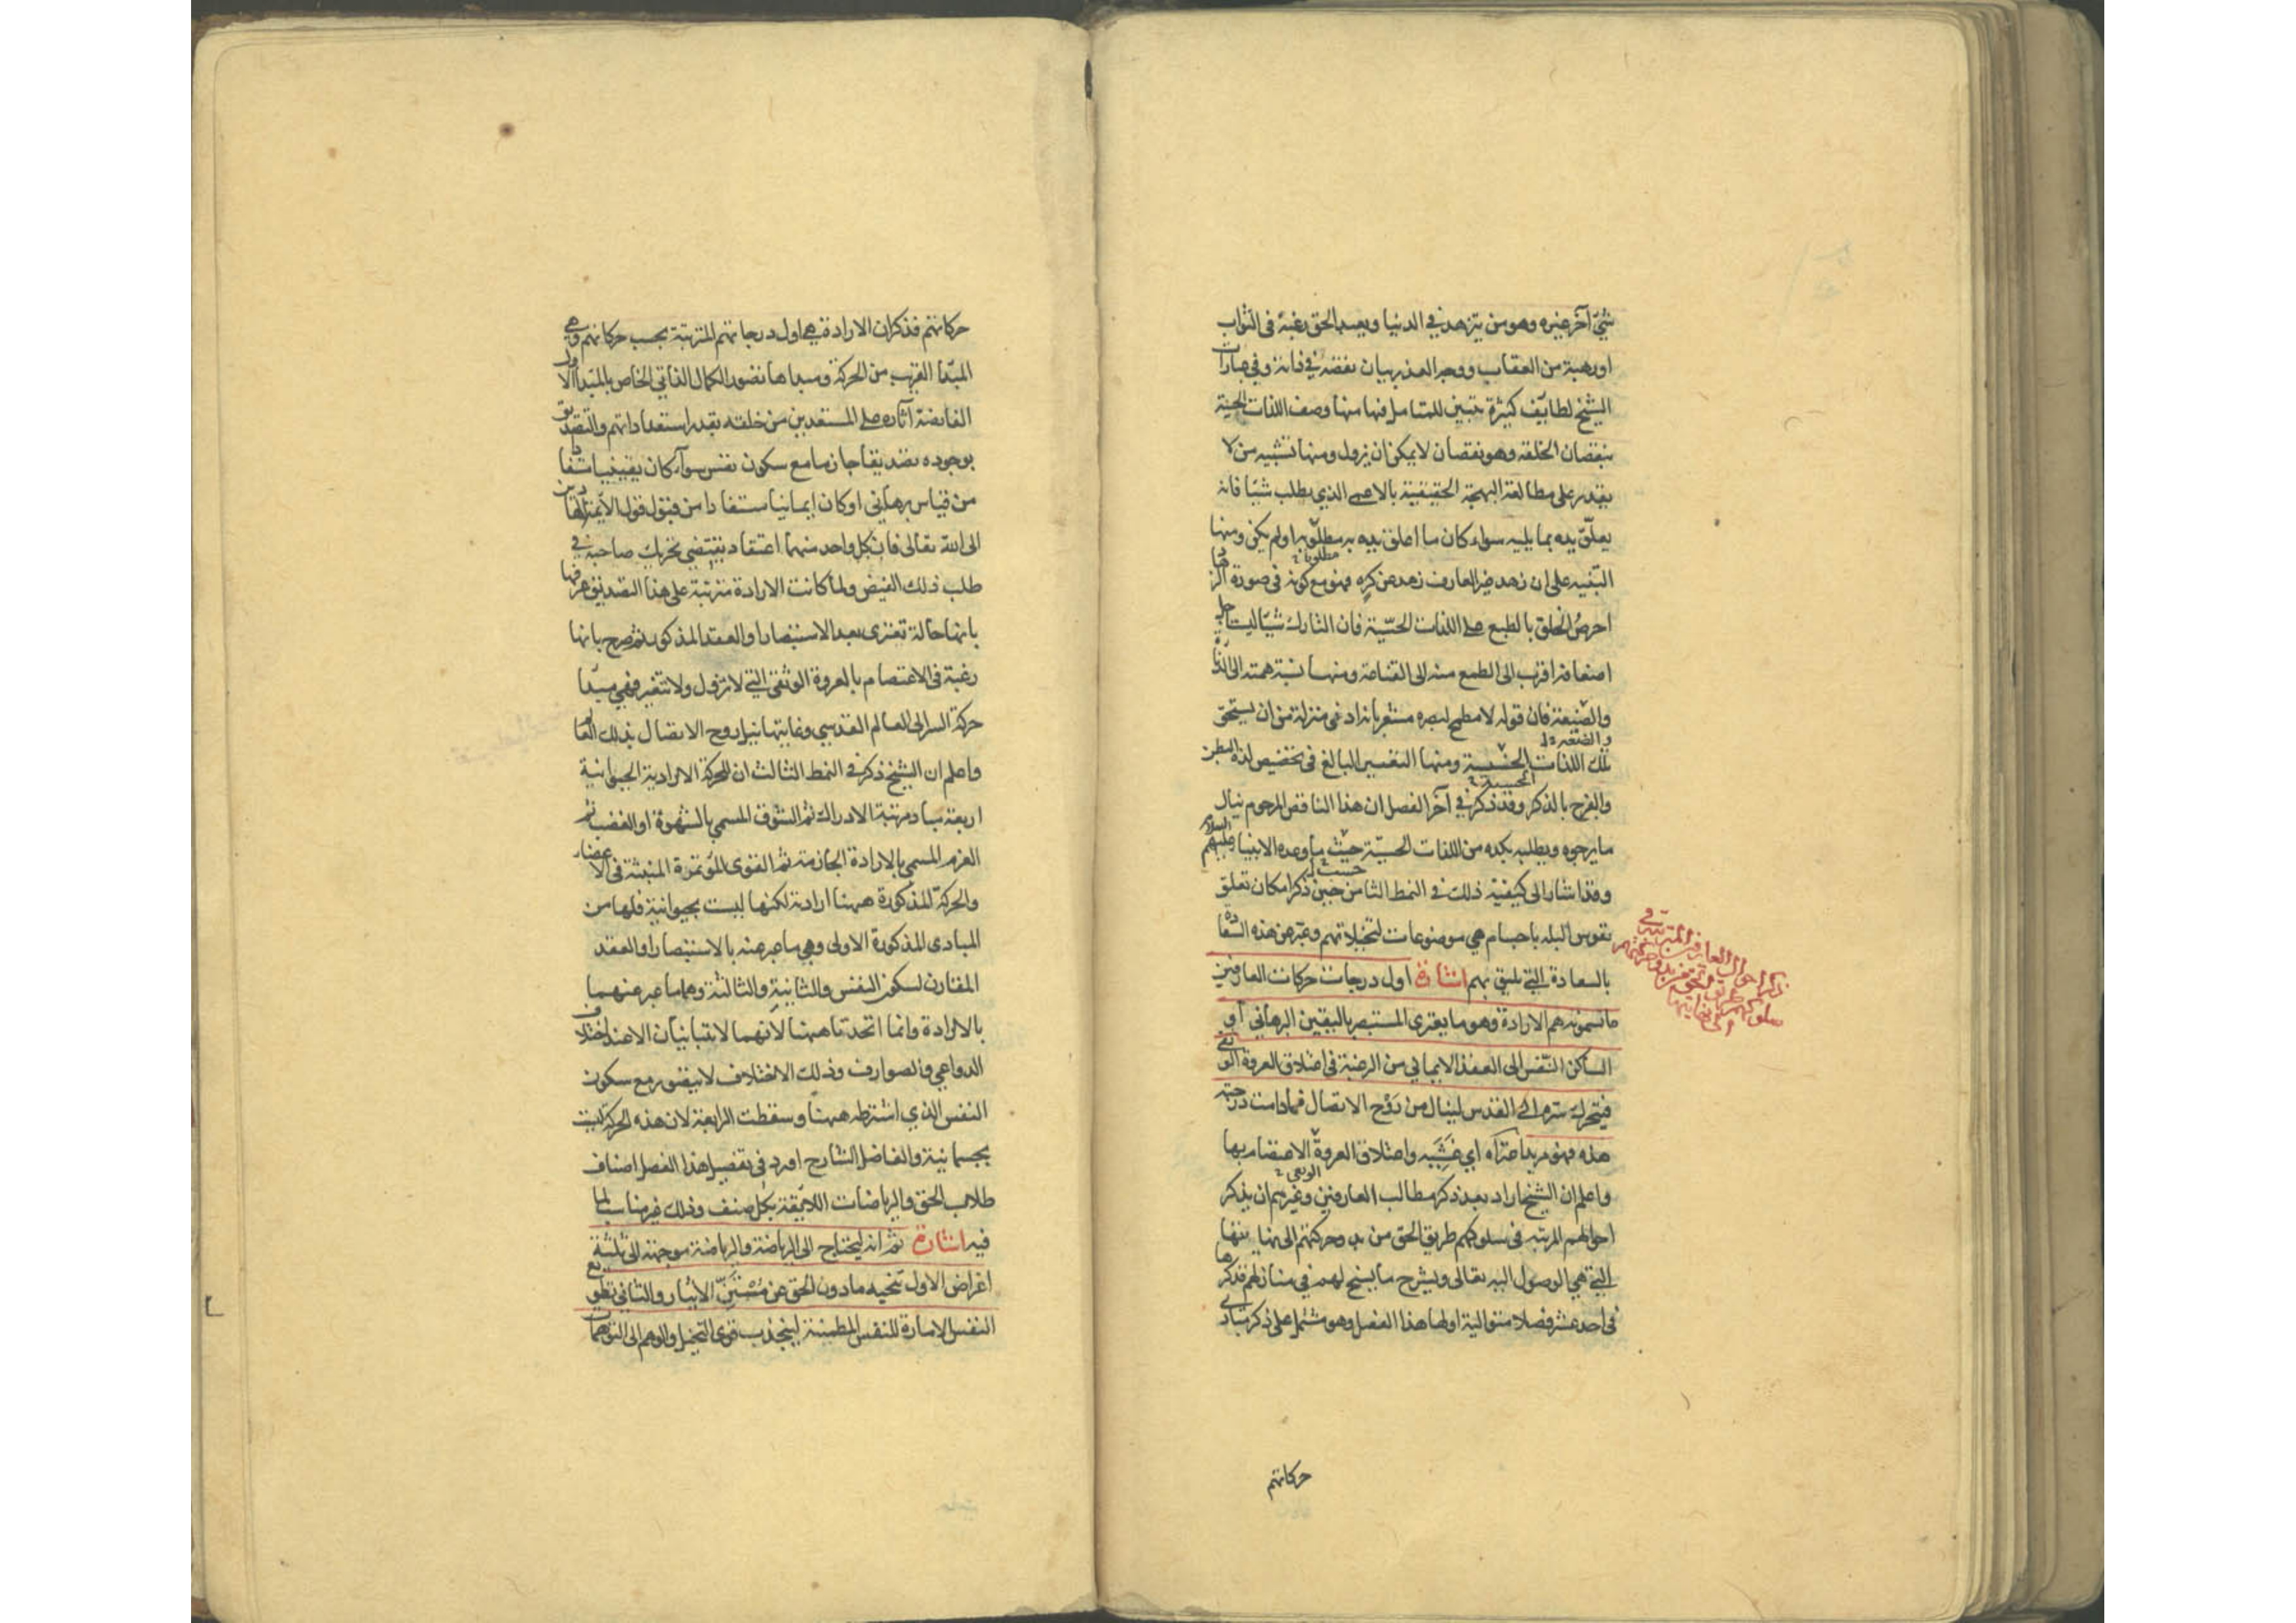 شيئ آخر غيره وهو من يتزهد في الدنيا ويعبد الحق رغبة فى الثواب
او رهبة من العقاب ووجه العذر بيان نقضه في ذاته وفي عبارات
الشيخ لطايف كثيرة تتبين للمتامل فيها منها وصف اللذات الحسية
بنقصان الخلقه وهو نقصان لا يمكن ان يزول ومنها تشبيه من لا
يقدر على مطالعة البهجة الحقيقية بالاعمى الذي يطلب شيئا فانه
يعلّق يده بما يليه سواء كان ما اعلق يده به مطلوبا او لم يكن ومنها
مطلوبا
التنبيه على ان زهد غير العارف زهد عن كره فهو مع كونه فى صورة الزهاد
احرصُ الخلق بالطبع على اللذات الحسّية فان التارك شيئا ليستاجل
اضعافه اقرب الى الطمع منه الى القناعة ومنها نسبة همته الى الدناة
والضيعة فان قوله لا مطمح لبصره مشعر بانه ادنى منزلة من ان يستحق
والضعة
تلك اللذات الخسيسة ومنها التعسير البالغ فى تخصيص لذة البطن
الحسية
والفرج بالذكر وقد ذكر في آخر الفصل ان هذا الناقص المرحوم ينال
ما يرجوه ويطلبه بكده من اللذات الحسيّة حيث ما وعده الانبيا عليهم السلام
حسب
وقد اشار الى كيفية ذلك في النمط الثامن حين ذكر امكان تعلق
نفوس البله باجسام هي موضوعات لتخيلاتهم وعبّر عن هذه السعادة
بالسعادة التي تليق بهم اشارة اول درجات حركات العارفين
ما تسمونه هم الارادة وهو ما يعترى المستبصر باليقين البرهانى او
الساكن النفس الى العقد الايمانى من الرغبة فى اعتلاق العروة الوثقى
فيتحرك سرّه الى القدس لينال من رَوْح الاتصال فما دامت درجته
هذه فهو مريد اعتراه اي غشيه واعتلاق العروة الاعتصام بها
الوثقى
واعلم ان الشيخ اراد بعد ذكر مطالب العارفين وغيرهم ان يذكر
احوالهم المرتبه فى سلوكهم طريق الحق من بدو حركتهم الى نهايتها
التي هي الوصول اليه تعالى ويشرح ما يسنح لهم في منازلهم فذكرها
فى احد عشر فصلا متوالية اولها هذا الفصل وهو مشتمل على ذكر مبادى
ذكر احوال العارفين المترتبة في
سلوكهم طريق الحق من بدو حركتهم
الى نهايتها
حركاتهم
حركاتهم فذكر ان الارادة هي اول درجاتهم المترتبة بحسب حركاتهم وهي
المبدا القريب من الحركة ومبداها تصور الكمال الذاتى الخاص بالمبدا الاول
الفايضة آثاره على المستعدين من خلقه بقدر استعداداتهم والتصديق
بوجوده تصديقا جازما مع سكون نفس سوآء كان يقينيا مستفادا
من قياس برهانى او كان ايمانيا مستفادا من قبول قول الائمة الهادين
الى الله تعالى فان كل واحد منهما اعتقاد يقتضى تحريك صاحبه في
طلب ذلك الفيض ولما كانت الارادة مترتبة على هذا التصديق عرفها
بانها حالة تعترى بعد الاستبصار او العقد المذكور ثم صرح بانها
رغبة فى الاعتصام بالعروة الوثقى التي لا تزول ولا تتغير فهي مبدا
حركة السر الى العالم القدسي وغايتها نيل روح الاتصال بذلك العالم
واعلم ان الشيخ ذكر فى النمط الثالث ان للحركة الارادية الحيوانية
اربعة مباد مرتبة الادراك ثم الشوق المسمى بالشهوة او الغضب ثم
العزم المسمى بالارادة الجازمة ثم القوى المؤتمرة المنبثة فى الاعضاء
والحركة المذكورة ههنا ارادية لكنها ليست بحيوانية فلها من
المبادى المذكورة الاولى وهي ما عبر عنه بالاستبصار او العقد
المقارن لسكون النفس والثانية والثالثة وهما ما عبر عنهما
بالارادة وانما اتحدتا ههنا لانهما لا تتباينان الا عند اختلاف
الدواعي والصوارف وذلك الاختلاف لا يتصور مع سكون
النفس الذي اشترطه ههنا وسقطت الرابعة لان هذه الحركة ليست
بجسمانية والفاضل الشارح اورد فى تفصيل هذا الفصل اصناف
طلاب الحق والرياضات اللايقة بكل صنف وذلك غير مناسب لما
فيه اشارة ثم انه ليحتاج الى الرياضة والرياضة موجهة الى ثلثة
اغراض الاول تنحيه ما دون الحق عن مُسْتَنّ الايثار والثانى تطويع
النفس الامارة للنفس المطمئنة لينجذب قوى التخيل والوهم الى التوهمات